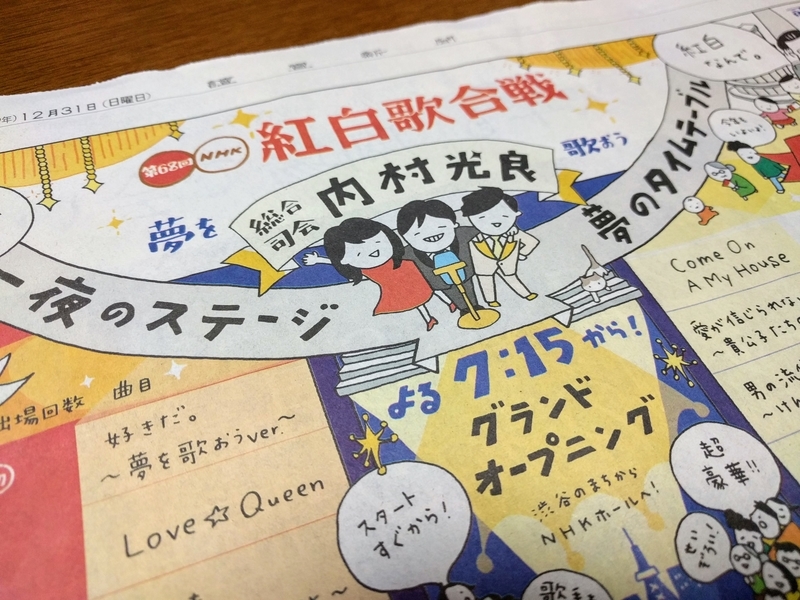 年) 12月31日 (日曜日)
讀賣新聞
第68回 NHK
紅白歌合戦
紅白
なんで。
総合
司会
内村光良
夢を
歌おう
一夜のステージ
夢のタイムテーブル
よる7:15から!
グランド
オープニング
渋谷のまちから
NHKホールへ!
スタート
すぐから!
超
豪華!!
出場回数
曲目
好きだ。
~夢を歌おうver.~
Love☆Queen
Come On
A My House
愛が信じられな
~貴公子たち
男の流
~けん